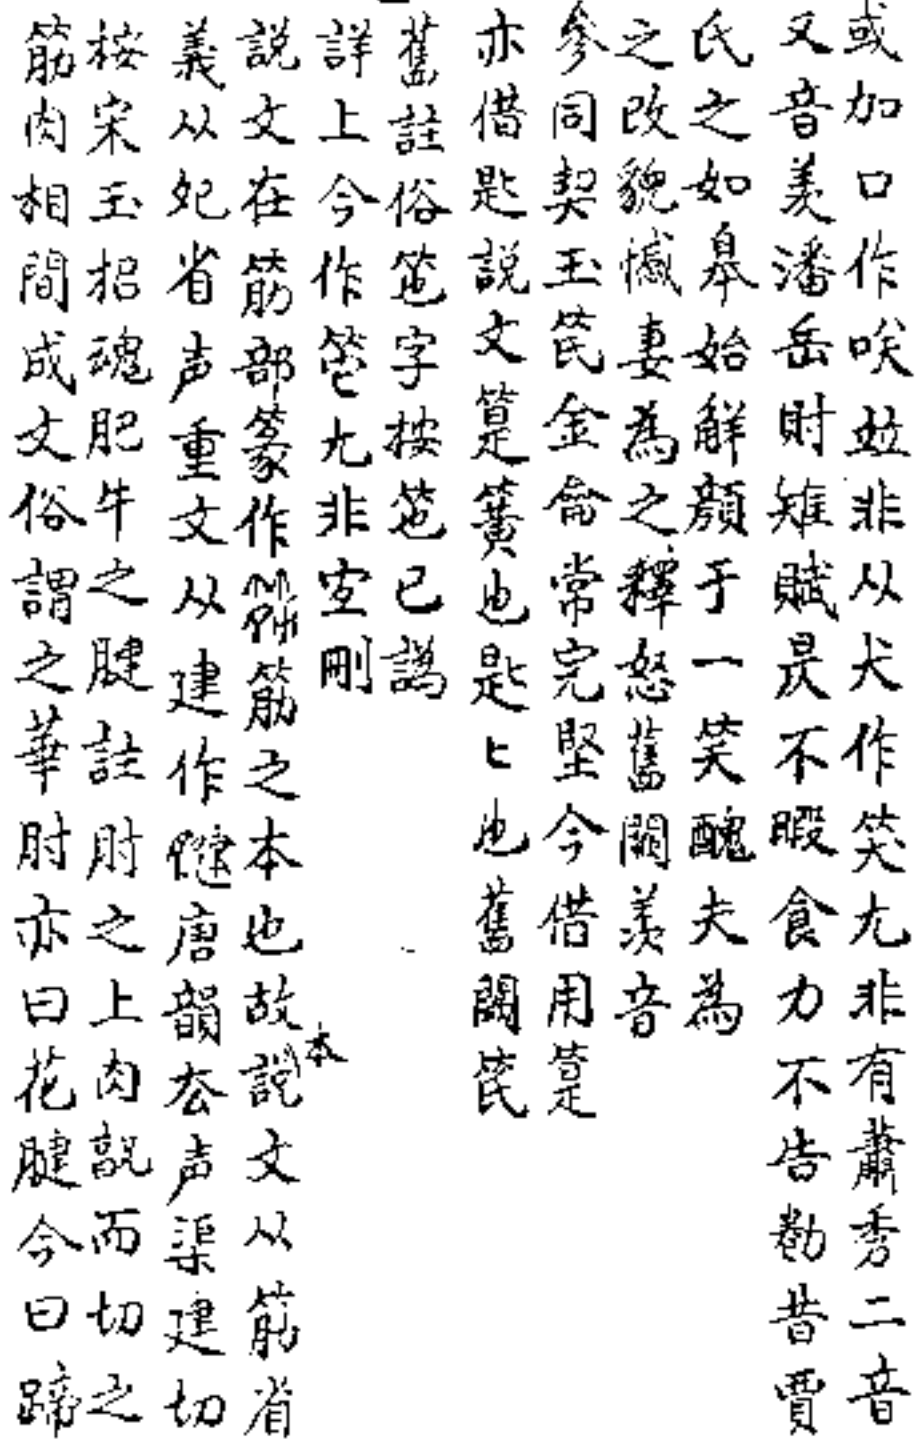 或加口作唉竝非从犬作笑尢非有蕭秀二音
又音羙潘岳財雉賦昃不暇食力不告勌昔賈
氏之如皋始觧顔于一笑醜夫為
之改貌憾妻為之釋怒舊闕羙音
參同契玉笢金侖常完堅今借用筻
亦借匙説文筻簧也匙匕也舊闕笢
舊註俗笣字按笣已譌
詳上今作尢非宔剛
説文在筋部篆作筋之本也故説本文从筋省
義从夗省声重文从建作唐韻厺声渠建切
桉宋玉招魂肥牛之腱註肘之上肉説而切之
筋肉相間成文俗謂之華肘亦曰花腱今曰蹄